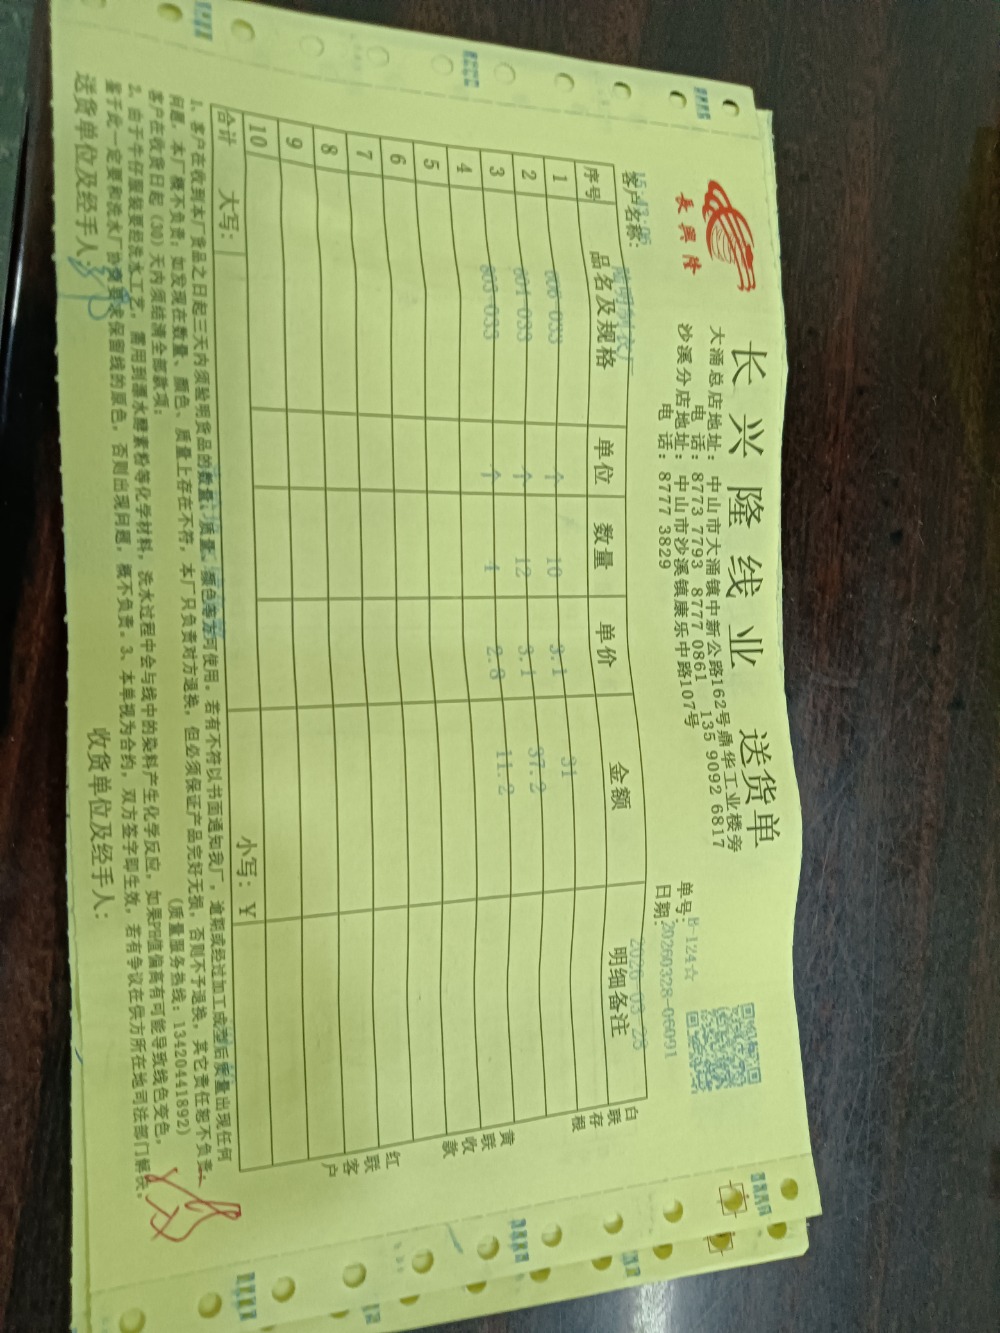 長興隆
长兴隆线业 送货单
大涌总店地址：中山市大涌镇中新公路162号鼎华工业楼旁
电 话：8773 7793 8777 0861 135 9092 6817
沙溪分店地址：中山市沙溪镇康乐中路107号
电 话：8777 3829
单号：B-124☆
日期：20260328-06091
客户名称：
15:43:06
2026-03-28
序号 品名及规格 单位 数量 单价 金额 明细备注
1 606-033 个 10 3.1 31
2 601-033 个 12 3.1 37.2
3 603-033 个 4 2.8 11.2
4
5
6
7
8
9
10
合计 大写： 小写：￥
白联存根
黄联收款
红联客户
1、客户在收到本厂货品之日起三天内须验明货品的数量、质量、颜色等方可使用。若有不符以书面通知我厂，逾期或经过加工成型后质量出现任何
问题，本厂概不负责；如发现在数量、颜色、质量上存在不符，本厂只负责对方退换，但必须保证产品完好无损，否则不予退换，其它责任恕不负责。
客户在收货日起（30）天内须结清全部款项； （质量服务热线：13420441892）
2、由于牛仔服装要经洗水工艺，需用到漂水酵素粉等化学材料，洗水过程中会与线中的染料产生化学反应，如果PH值偏高有可能导致线色变色，
鉴于此一定要和洗水厂协商要求保留线的原色，否则出现问题，概不负责。3、本单视为合约，双方签字即生效，若有争议在供方所在地司法部门解决。
送货单位及经手人： 收货单位及经手人：